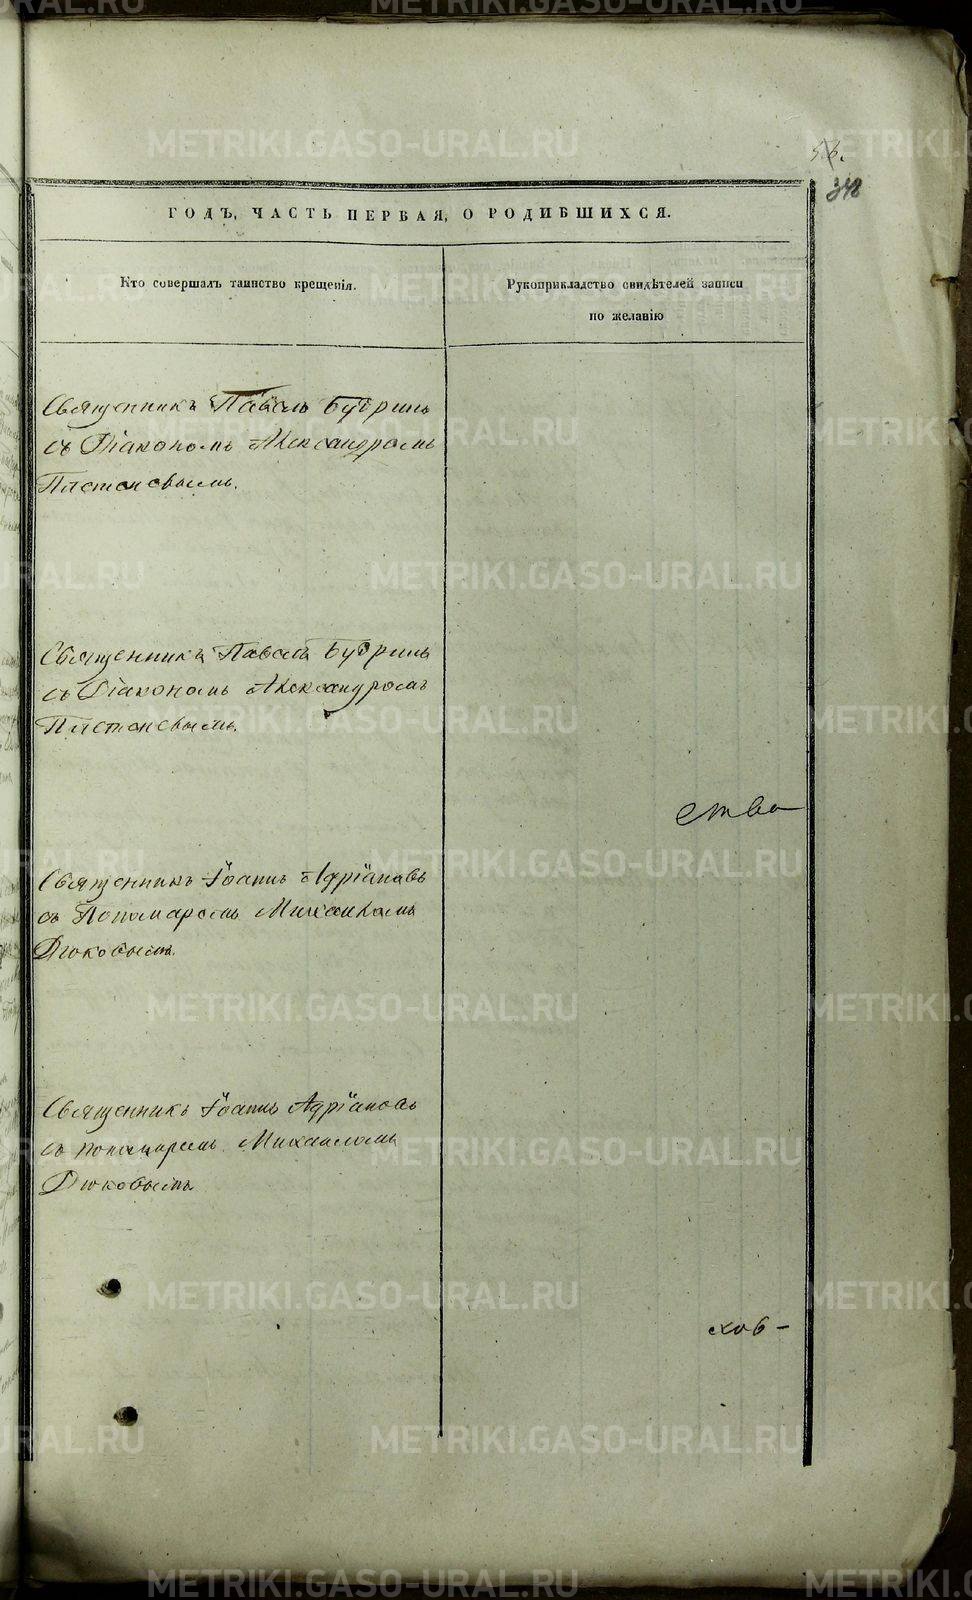 56.
348
ГОДЪ, ЧАСТЬ ПЕРВАЯ, О РОДИВШИХСЯ.
Кто совершалъ таинство крещенія.
Рукоприкладство свидѣтелей записи
по желанію
Священникъ Павелъ Будринъ
съ Діакономъ Александромъ
Плетеневымъ.
Священникъ Павелъ Будринъ
съ Діакономъ Александромъ
Плетеневымъ.
ства
Священникъ Іоаннъ Адріановъ
съ Пономаремъ Михаиломъ
Дюковымъ.
Священникъ Іоаннъ Адріановъ
съ пономаремъ Михаиломъ
Дюковымъ
хов-
METRIKI.GASO-URAL.RU